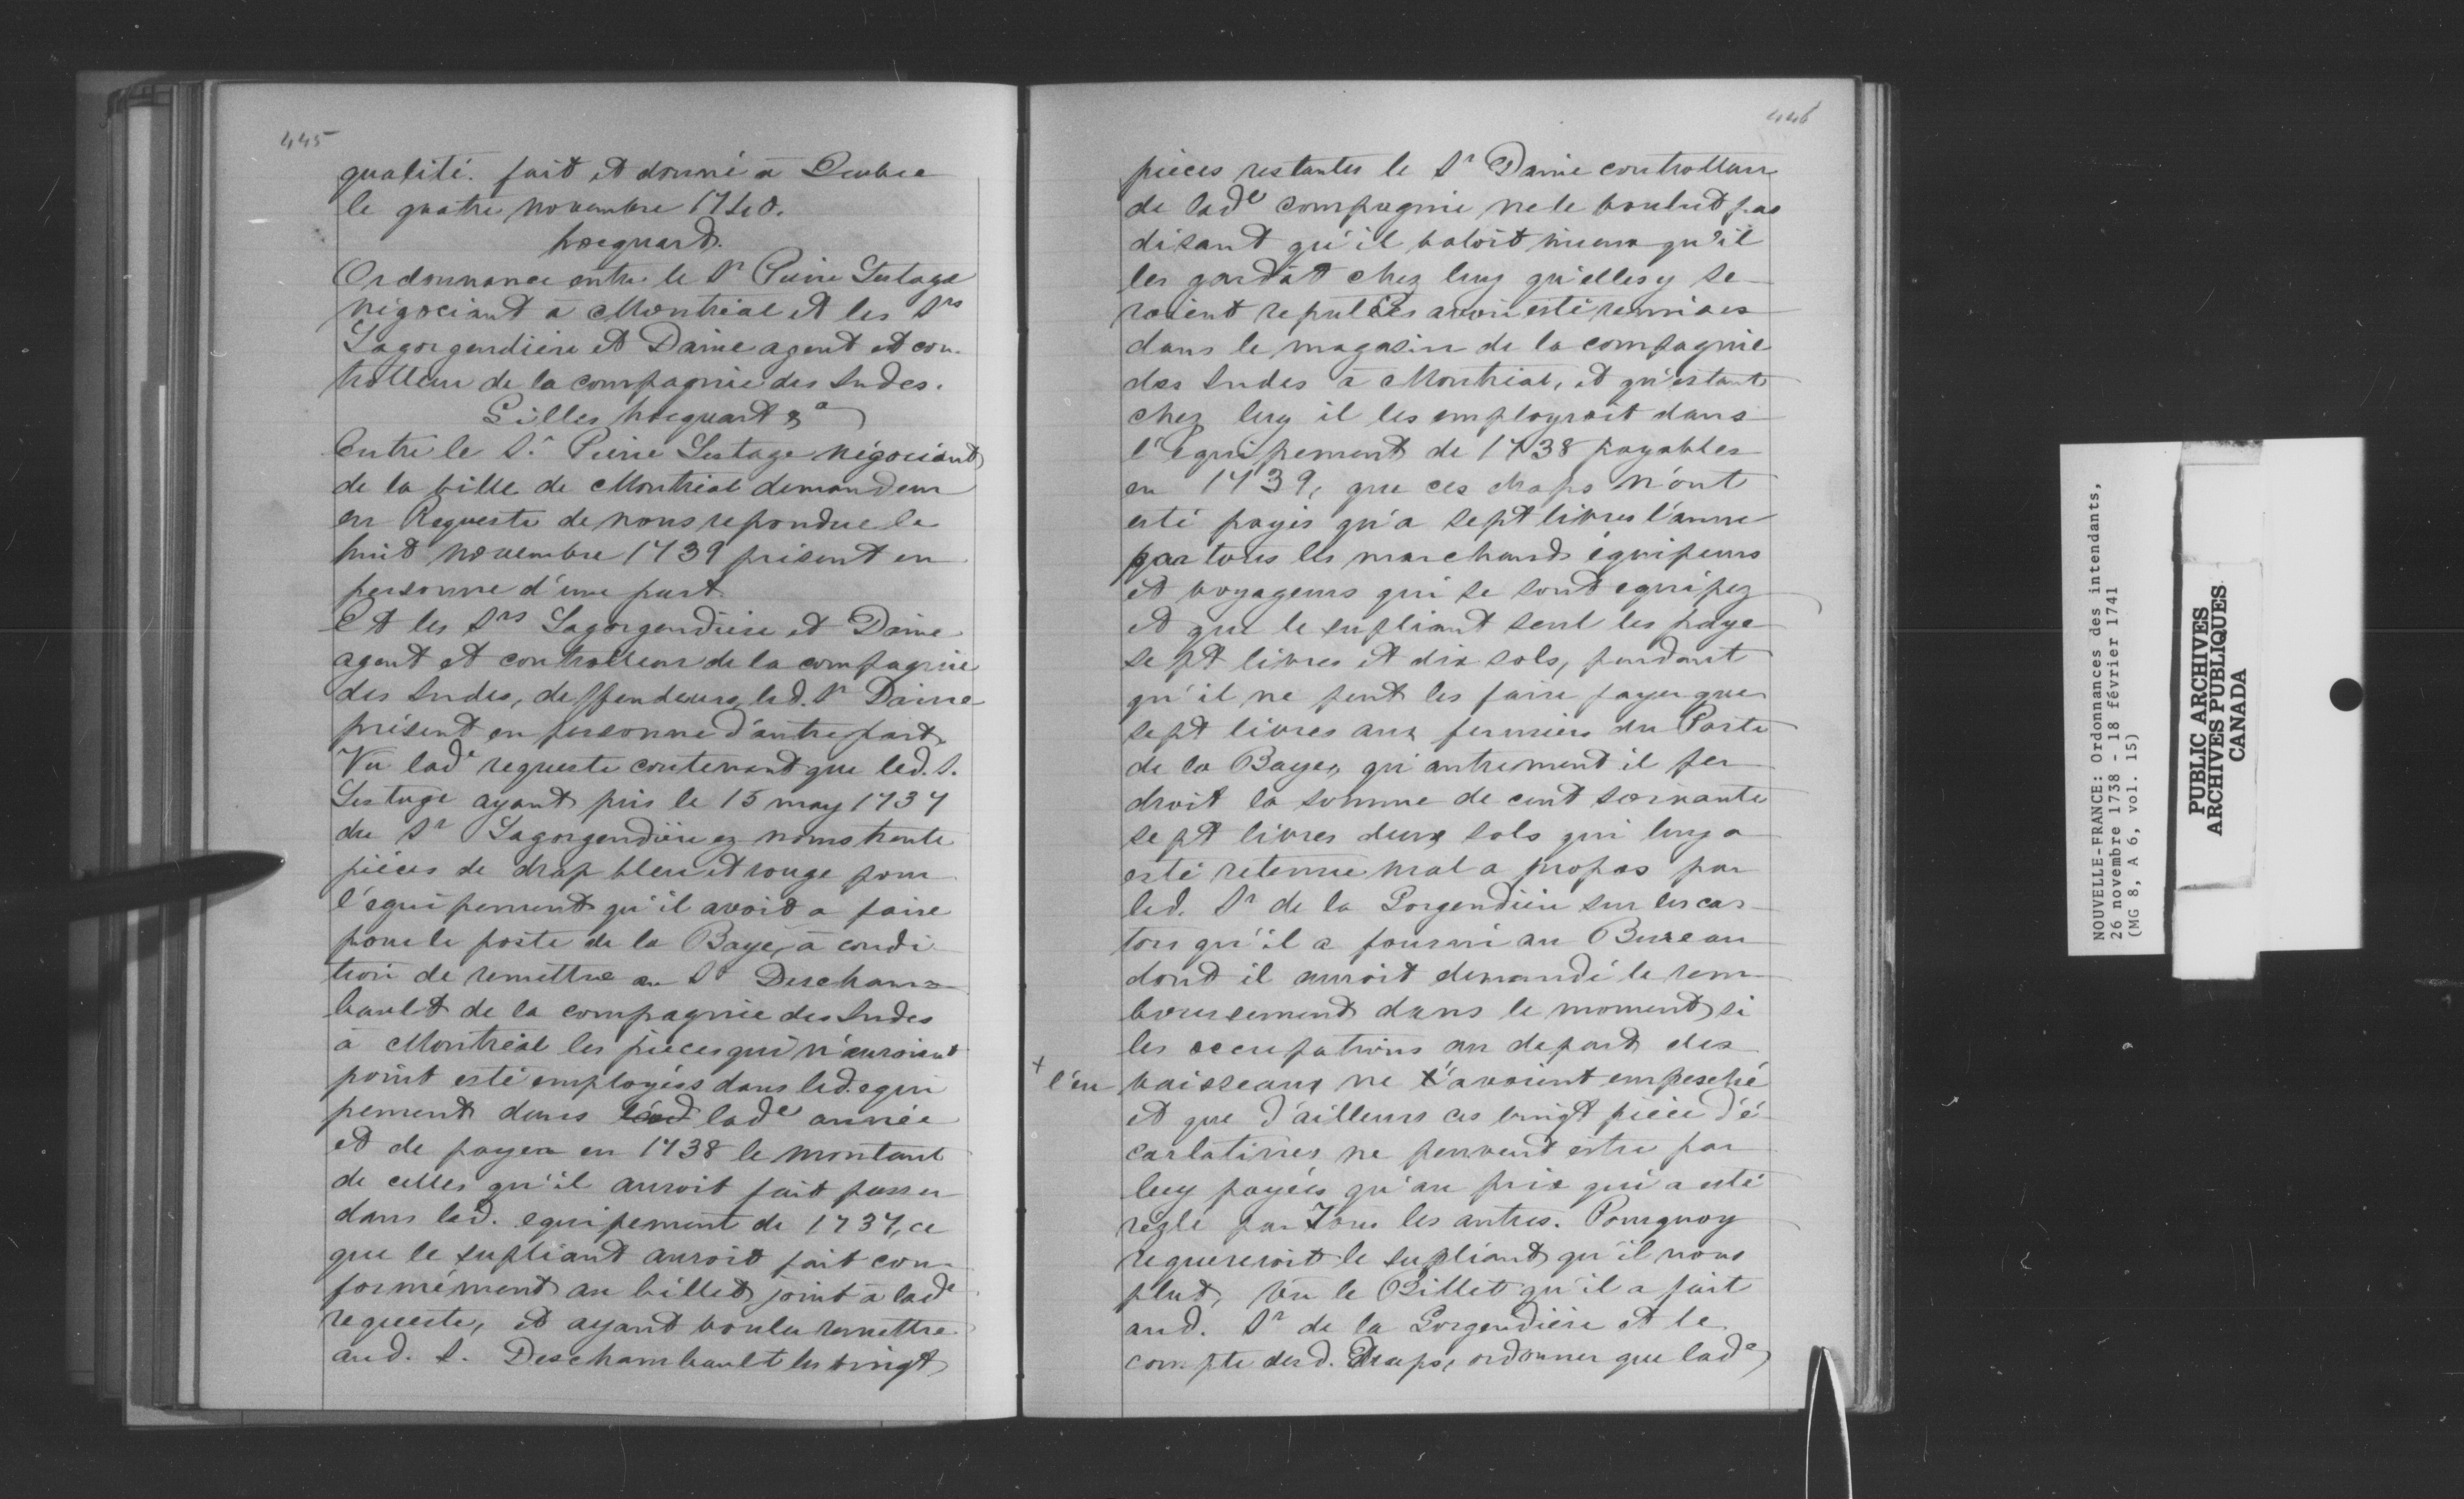 445
qualité. fait et donné à Quebec
le quatre novembre 1740.
hocquart.
Ordonnance entre le Sr Pierre Lestage
négociant à Montréal et les Srs
Lagorgendière et Daine agent et con-
trolleur de la compagnie des Indes.
Gilles hocquart &a
Entre le S.r Pierre Lestage négociant
de la ville de Montréal demandeur
en Requeste de nous repondue le
huit novembre 1739 présent en
personne d'une part.
Et les Srs Lagorgendière et Daine
agent et controlleur de la compagnie
des Indes, deffendeurs, led. Sr Daine
présent en personne d'autre part.
Vu lade requeste contenant que led. S.
Lestage ayant pris le 15 may 1737
du Sr Lagorgendière ez noms trente
pièces de drap bleu et rouge pour
l'équipement qu'il avoit a faire
pour le poste de la Baye, à condi
tion de remettre au Sr Descham-
bault de la compagnie des Indes
à Montréal les pièces qui n'auroient
point esté employées dans led. equi
pement dans lade année
et de payer en 1738 le montant
de celles qu'il auroit fait passer
dans led. equipement de 1737, ce
que le supliant auroit fait con-
formément au billet joint à lade
requeste, et ayant voulu remettre
aud. S. Deschambault les vingt
446
pièces restantes le Sr Daine controlleur
de lade compagnie ne le voulut pas
disant qu'il valoit mieux qu'il
les gardât chez luy qu'elles y se-
roient reputées avoir esté remises
dans le magasin de la compagnie
des Indes à Montréal, et qu'estant
chez luy il les employroit dans
l'équipement de 1738 payables
en 1739, que ces draps n'ont
esté payés qu'a sept livres l'aune
par tous les marchands équipeurs
et voyageurs qui se sont equipez
et que le supliant seul les paye
sept livres et dix sols, pendant
qu'il ne peut les faire payer que
sept livres aux fermiers du Poste
de la Baye, qu'autrement il per
droit la somme de cent soixante
sept livres deux sols qui luy a
esté retenue mal a propos par
led. Sr de la Gorgendière sur les cas-
tors qu'il a fourni au Bureau
dont il auroit demandé le rem-
boursement dans le moment si
les occupations au depart des
+ l'en vaisseaux ne l'avoient empesché
et que d'ailleurs ces vingt pièce d'é-
carlatines ne peuvent estre par
luy payées qu'au prix qui a esté
réglé par Tous les autres. Pourquoy
requereroit le supliant qu'il nous
plut, Vu le Billet qu'il a fait
aud. Sr de la Gorgendière et le
compte desd. Draps, ordonner que lade
NOUVELLE-FRANCE: Ordonnances des intendants,
26 novembre 1738 - 18 février 1741
(MG 8, A 6, vol. 15)
PUBLIC ARCHIVES
ARCHIVES PUBLIQUES
CANADA